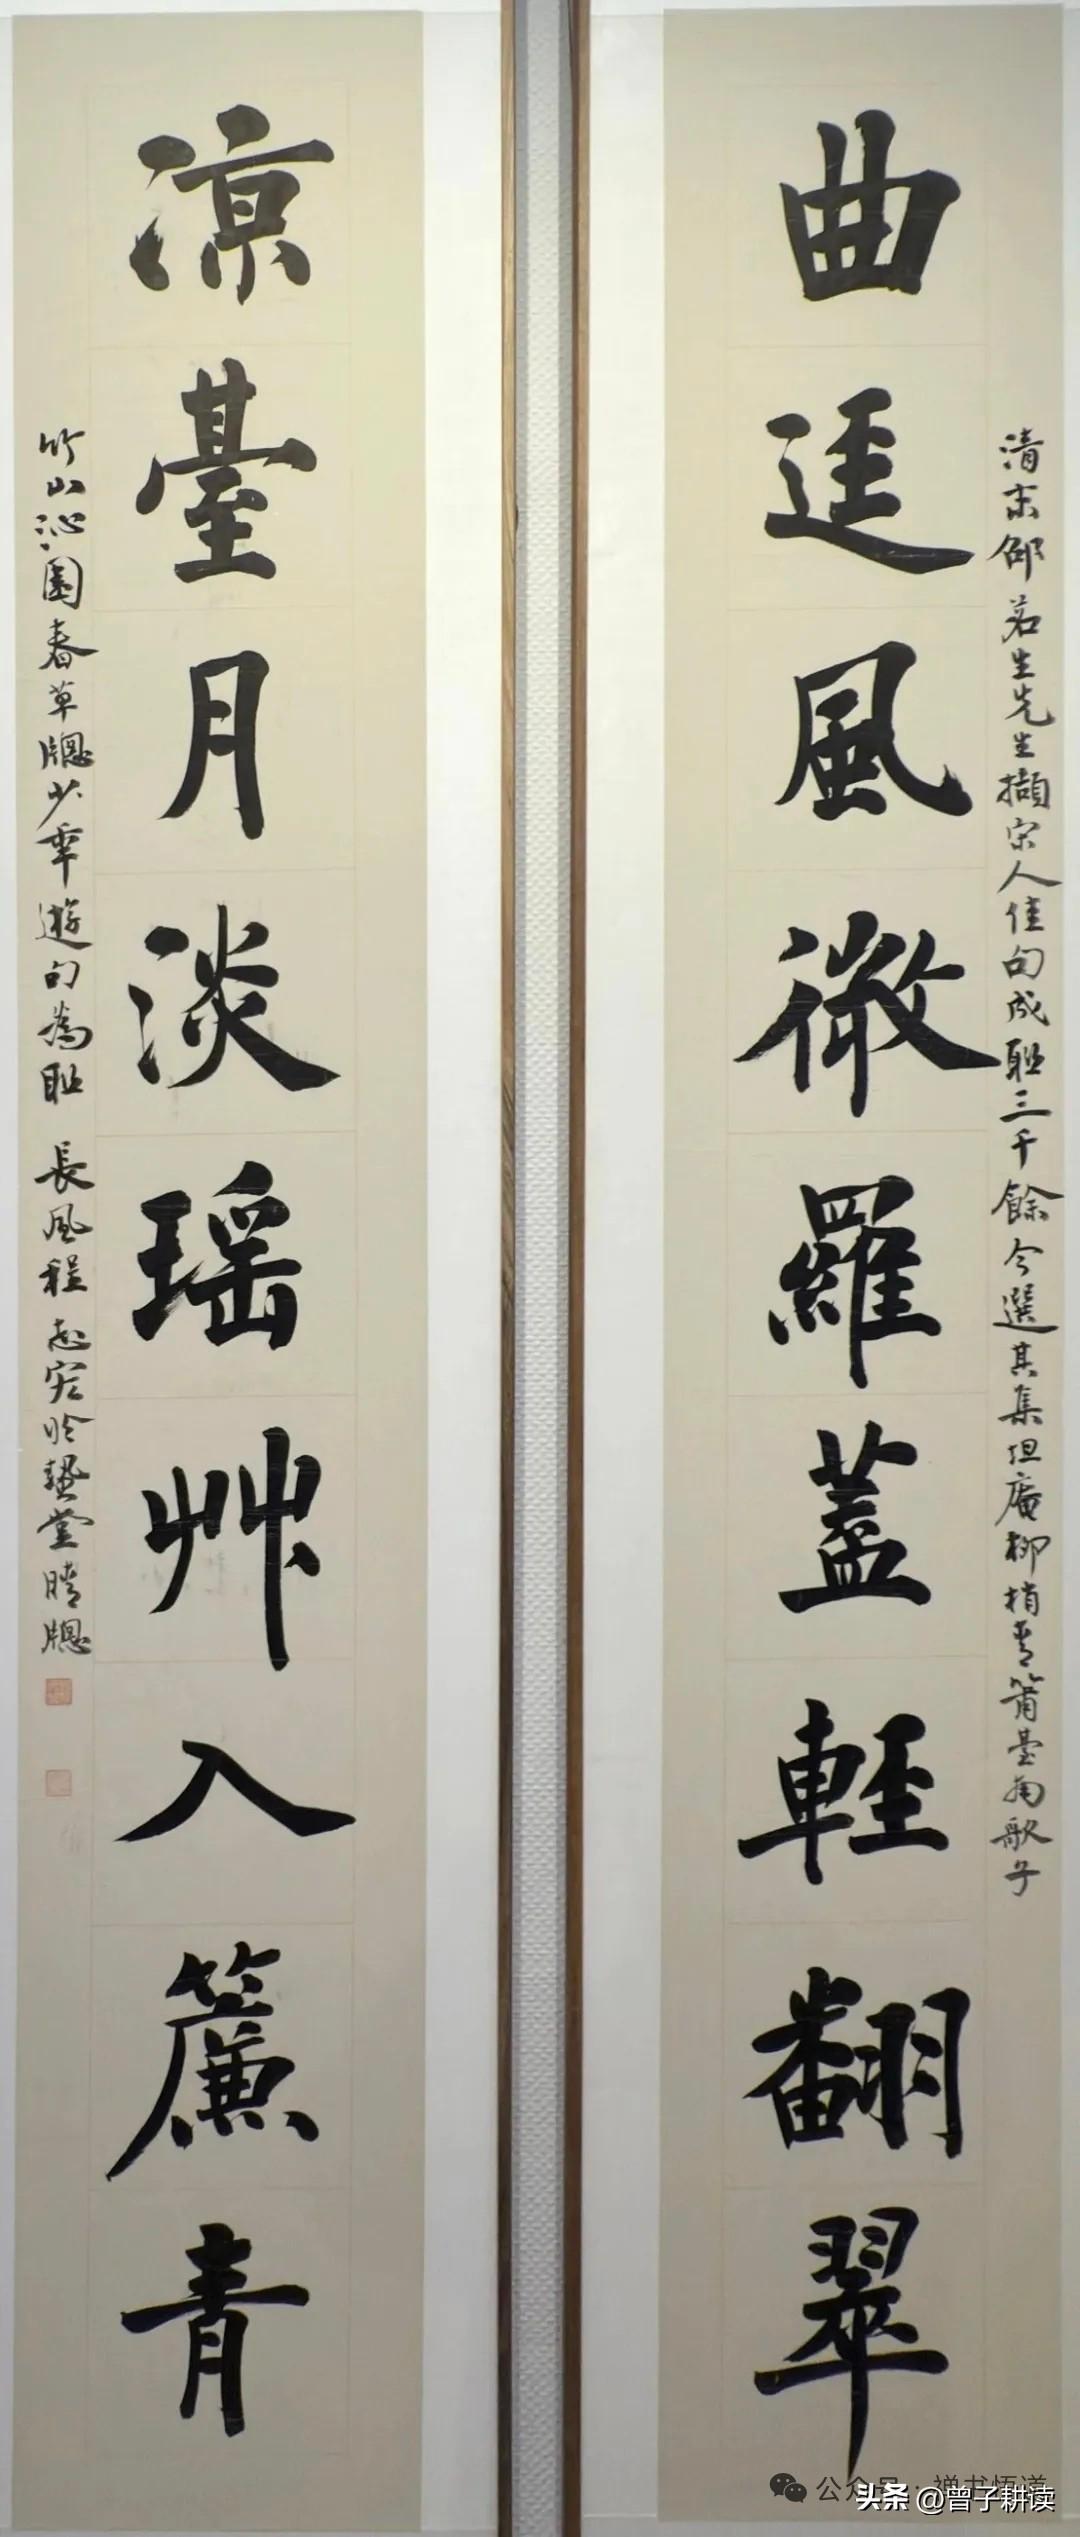 曲逕風微羅蓋輕翻翠
清末邵茗生先生擷宋人佳句成联三千餘今選其集坦庵柳梢青箫臺南歌子
涼臺月淡瑶艸入簾青
竹山沁園春草牕少年遊句為联 長風程志宏於蟄堂晴牕
公众号·禅书悟道
头条 @曾子耕读